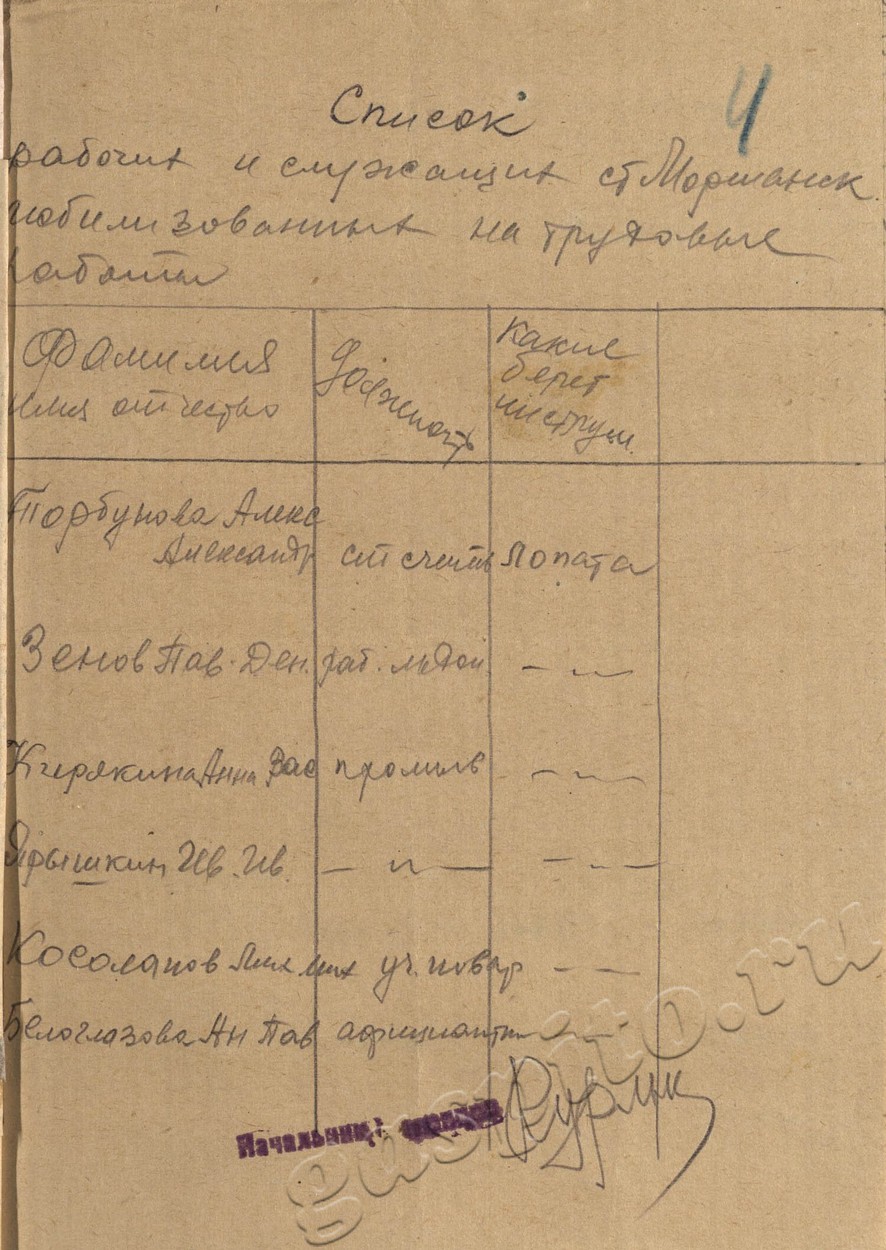 4
Список
рабочих и служащих ст Моршанск
мобилизованных на трудовые
работы
Фамилия
имя отчество
Должность
какие
берет
инструм.
Торбунова Алекс
Александр ст счетв лопата
Зенов Пав. Ден. раб. льдон - " -
Анна Вас - " -
Ярышкин Ив. Ив. - " - - " -
Косолапов Мих Мих уч. повар - " -
Белоглазова Ан Пав официантк - " -
Начальник
guskmto.ru